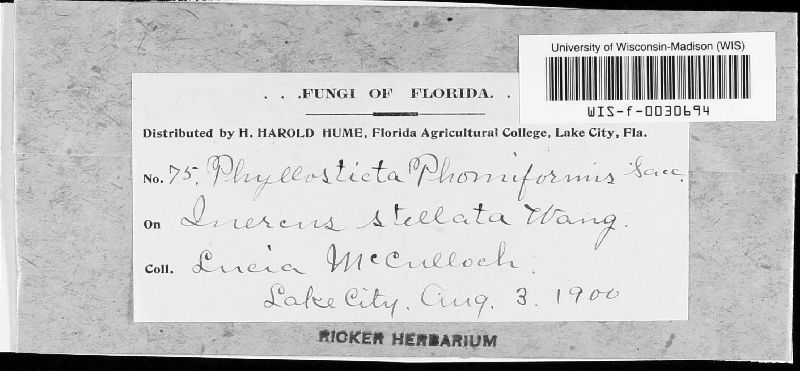 University of Wisconsin-Madison (WIS)
WIS-f-0030694
. . .FUNGI OF FLORIDA. .
Distributed by H. HAROLD HUME, Florida Agricultural College, Lake City, Fla.
No. 75. Phyllosticta Phomiformis Sacc.
On Quercus stellata Wang.
Coll. Lucia McCulloch.
Lake City. Aug. 3. 1900
RICKER HERBARIUM